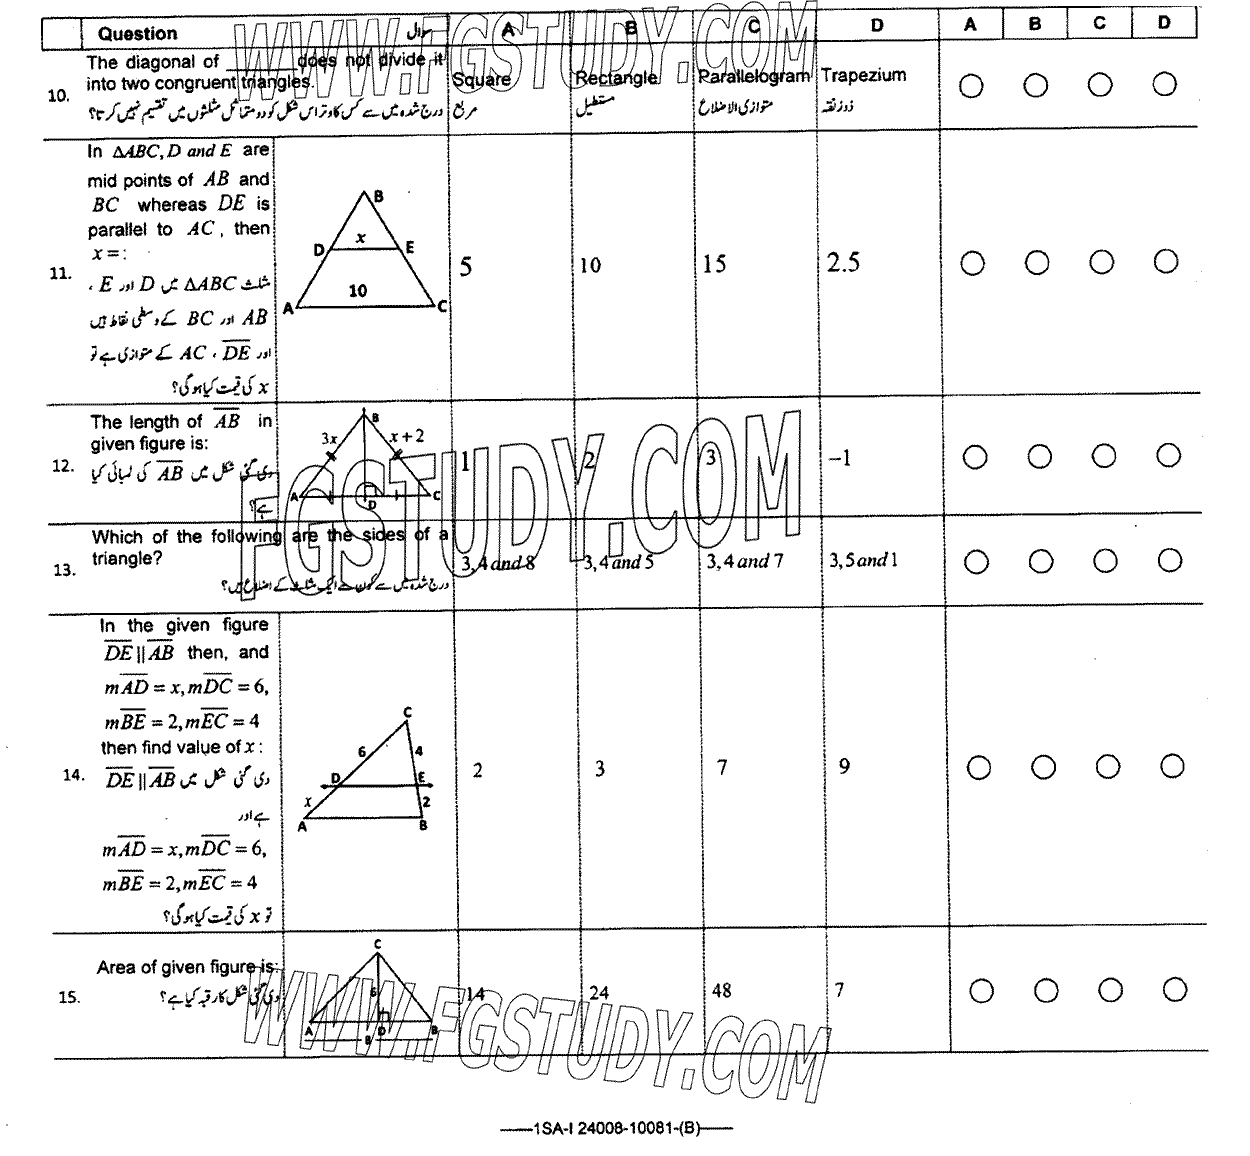 Question سوال A B C D A B C D
10. The diagonal of ______ does not divide it
into two congruent triangles.
درج شدہ میں سے کس کا وتر اس شکل کو دو متماثل مثلثوں میں تقسیم نہیں کرتا؟
Square
مربع
Rectangle
مستطیل
Parallelogram
متوازی الاضلاع
Trapezium
ذوزنقہ
11. In ΔABC, D and E are
mid points of AB and
BC whereas DE is
parallel to AC, then
x =:
مثلث ΔABC میں D اور E ،
AB اور BC کے وسطی نقاط ہیں
اور \overline{DE} ، AC کے متوازی ہے تو
x کی قیمت کیا ہوگی؟
B
D x E
10
A C
5 10 15 2.5
12. The length of \overline{AB} in
given figure is:
دی گئی شکل میں \overline{AB} کی لمبائی کیا
ہے؟
B
3x x + 2
A D C
1 2 3 −1
13. Which of the following are the sides of a
triangle?
درج شدہ میں سے کون سے ایک مثلث کے اضلاع ہیں؟
3, 4 and 8 3, 4 and 5 3, 4 and 7 3, 5 and 1
14. In the given figure
\overline{DE} || \overline{AB} then, and
m\overline{AD} = x, m\overline{DC} = 6,
m\overline{BE} = 2, m\overline{EC} = 4
then find value of x :
دی گئی شکل میں \overline{DE} || \overline{AB}
ہے اور
m\overline{AD} = x, m\overline{DC} = 6,
m\overline{BE} = 2, m\overline{EC} = 4
تو x کی قیمت کیا ہوگی؟
C
6 4
D E
x 2
A B
2 3 7 9
15. Area of given figure is:
دی گئی شکل کا رقبہ کیا ہے؟
C
6
A D B
8
14 24 48 7
WWW.FGSTUDY.COM
FGSTUDY.COM
WWW.FGSTUDY.COM
——1SA-I 24008-10081-(B)——